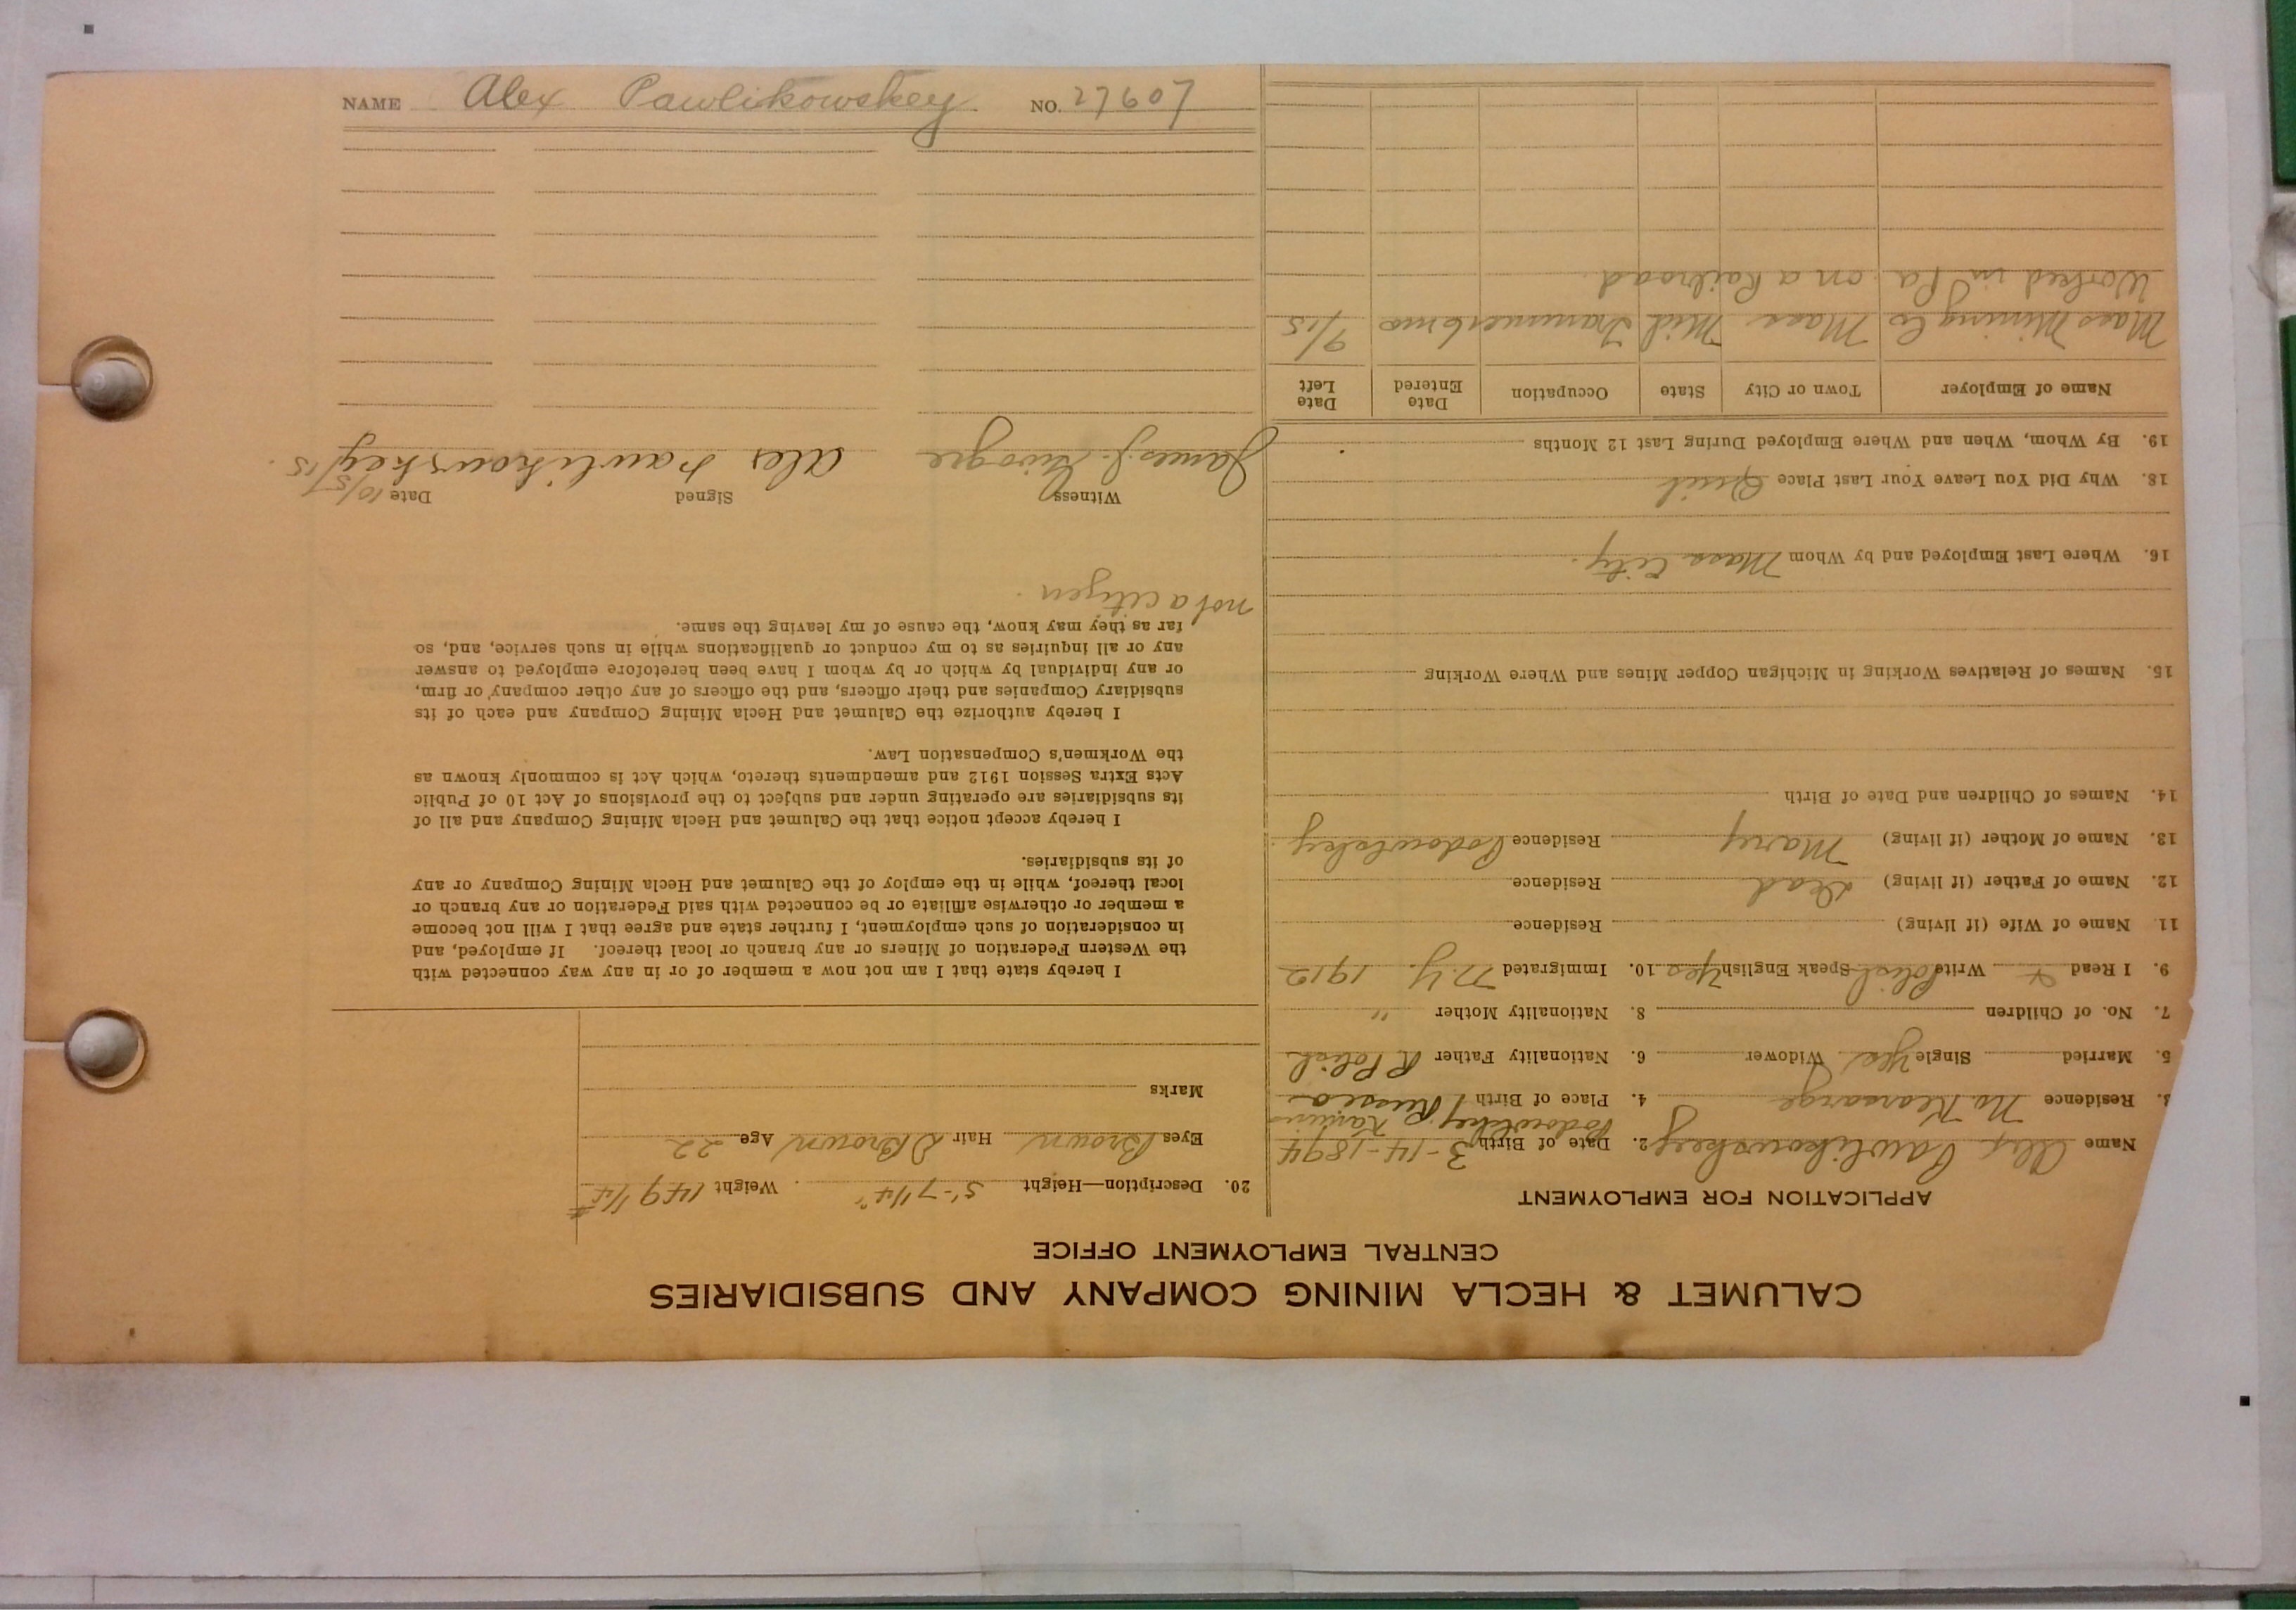 NAME Alex Pawlikowskey NO. 27607
CALUMET & HECLA MINING COMPANY AND SUBSIDIARIES
CENTRAL EMPLOYMENT OFFICE
APPLICATION FOR EMPLOYMENT
Name Alex Pawlikowskey 2. Date of Birth 3-14-1894
3. Residence No Kearsarge 4. Place of Birth Russia
5. Married Single Yes Widower 6. Nationality Father R Polish
7. No. of Children 8. Nationality Mother "
9. I Read & Write Polish Speak English Yes 10. Immigrated N.Y. 1912
11. Name of Wife (if living) Residence
12. Name of Father (if living) Dead Residence
13. Name of Mother (if living) Mary Residence
14. Names of Children and Date of Birth
15. Names of Relatives Working in Michigan Copper Mines and Where Working
16. Where Last Employed and by Whom Mass City.
18. Why Did You Leave Your Last Place Quit
19. By Whom, When and Where Employed During Last 12 Months
Name of Employer Town or City State Occupation Date Entered Date Left
Mass Mining Co Mass Mich Trammer 6 mo 9/15
Worked in Pa. on a Railroad.
20. Description—Height 5'-7 1/4" Weight 149 1/4 #
Eyes Brown Hair D Brown Age 22
Marks
I hereby state that I am not now a member of or in any way connected with
the Western Federation of Miners or any branch or local thereof. If employed, and
in consideration of such employment, I further state and agree that I will not become
a member or otherwise affiliate or be connected with said Federation or any branch or
local thereof, while in the employ of the Calumet and Hecla Mining Company or any
of its subsidiaries.
I hereby accept notice that the Calumet and Hecla Mining Company and all of
its subsidiaries are operating under and subject to the provisions of Act 10 of Public
Acts Extra Session 1912 and amendments thereto, which Act is commonly known as
the Workmen's Compensation Law.
I hereby authorize the Calumet and Hecla Mining Company and each of its
subsidiary Companies and their officers, and the officers of any other company or firm,
or any individual by which or by whom I have been heretofore employed to answer
any or all inquiries as to my conduct or qualifications while in such service, and, so
far as they may know, the cause of my leaving the same.
not a citizen.
Witness Signed Date 10/5/15.
James J. Alex Pawlikowskey